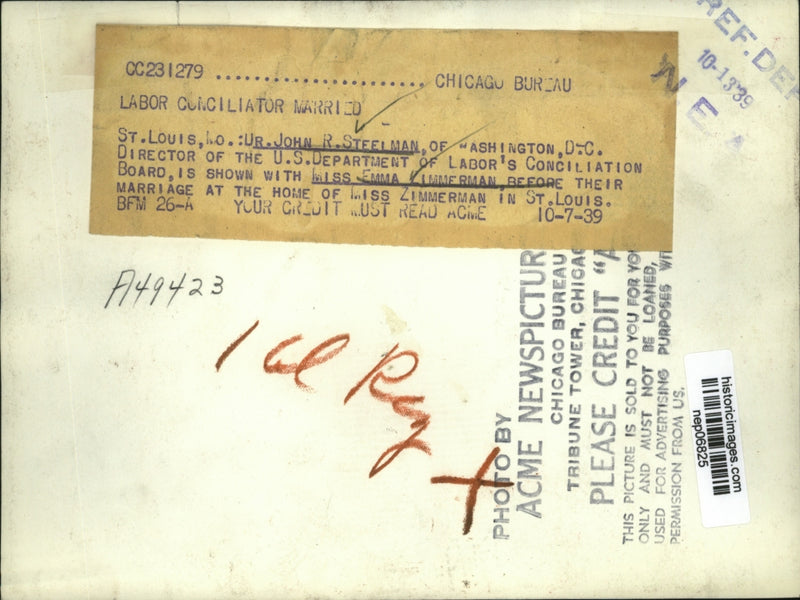 CC231279 ...................... CHICAGO BUREAU
LABOR CONCILIATOR MARRIED
ST.LOUIS,MO.:DR.JOHN R.STEELMAN,OF WASHINGTON,D.C.
DIRECTOR OF THE U.S.DEPARTMENT OF LABOR'S CONCILIATION
BOARD,IS SHOWN WITH MISS EMMA ZIMMERMAN,BEFORE THEIR
MARRIAGE AT THE HOME OF MISS ZIMMERMAN IN ST.LOUIS.
BFM 26-A YOUR CREDIT MUST READ ACME 10-7-39
REF. DEP
10-13-39
N E A
A49423
1 Col Reg
PHOTO BY
ACME NEWSPICTUR
CHICAGO BUREAU
TRIBUNE TOWER, CHICAG
PLEASE CREDIT "A
THIS PICTURE IS SOLD TO YOU FOR YOU
ONLY AND MUST NOT BE LOANED,
USED FOR ADVERTISING PURPOSES WI
PERMISSION FROM US.
historicimages.com
nep06825